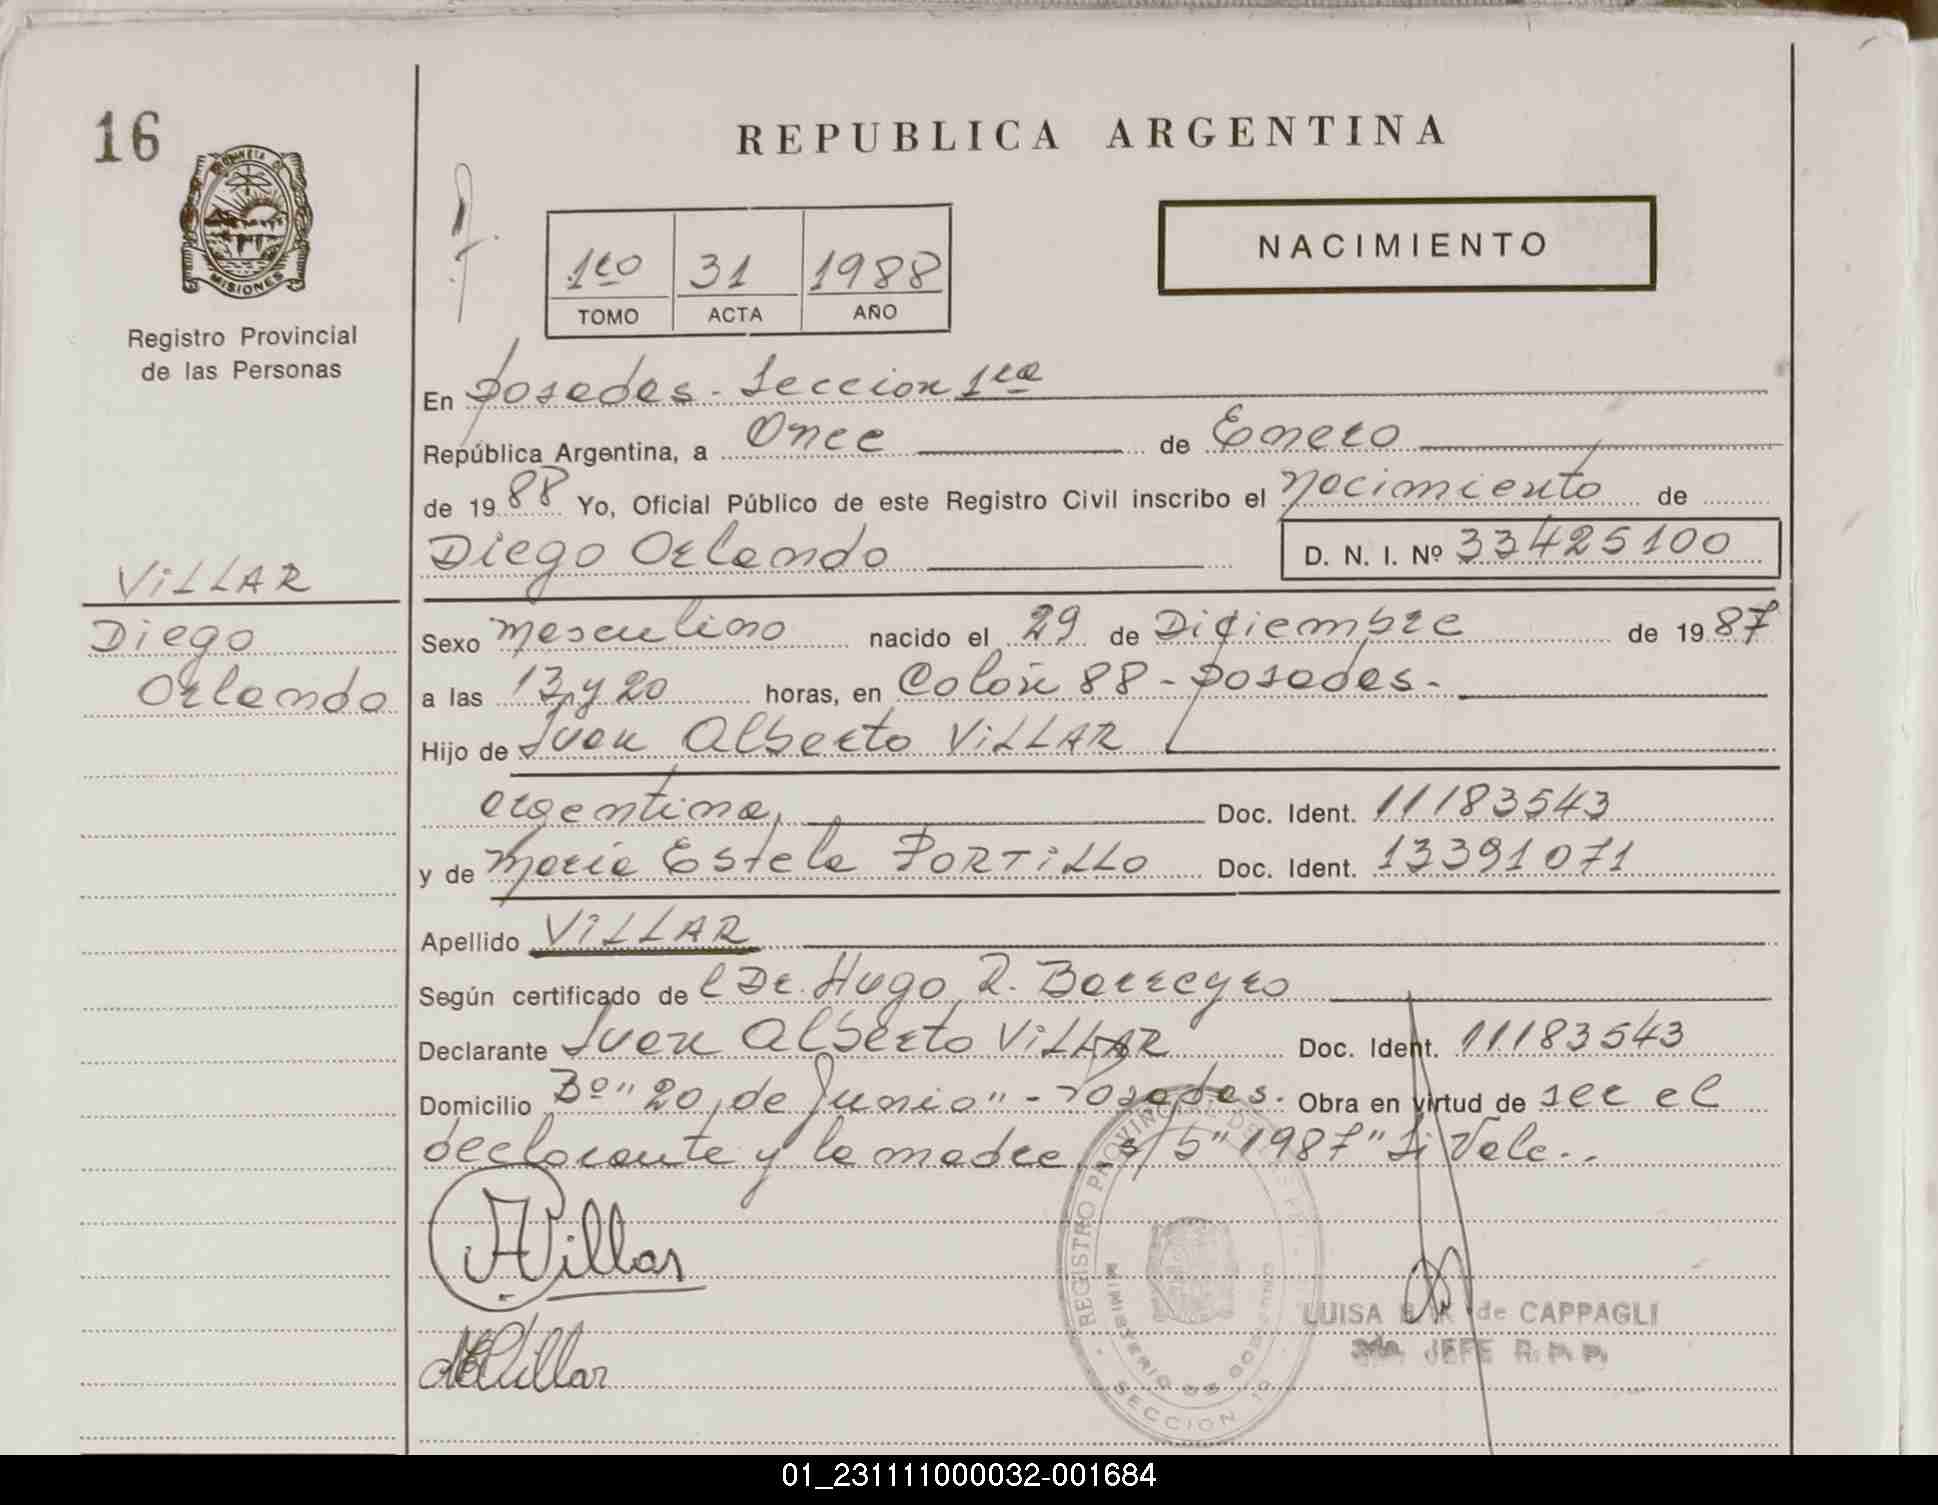 16
REPUBLICA ARGENTINA
NACIMIENTO
1ro 31 1988
TOMO ACTA AÑO
MISIONES
Registro Provincial
de las Personas
En Posadas - Seccion 1ra
República Argentina, a Once de Enero
de 1988 Yo, Oficial Público de este Registro Civil inscribo el Nacimiento de
Diego Orlando D. N. I. Nº 33425100
VILLAR
Diego
Orlando
Sexo Masculino nacido el 29 de Diciembre de 1987
a las 13 y 20 horas, en Colón 88 - Posadas.-
Hijo de Juan Alberto VILLAR
argentina, Doc. Ident. 11183543
y de María Estela PORTILLO Doc. Ident. 13391071
Apellido VILLAR
Según certificado de l Dr. Hugo R. Barreyro
Declarante Juan Alberto VILLAR Doc. Ident. 11183543
Domicilio Bº "20 de Junio" - Posadas. Obra en virtud de ser el
declarante y la madre. s/b "1987" Si Vale..
Villar
Villar
REGISTRO PROVINCIAL DE LAS
MINISTERIO DE GOBIERNO
SECCION 1a
LUISA de CAPPAGLI
JEFE R. P. P.
01_231111000032-001684